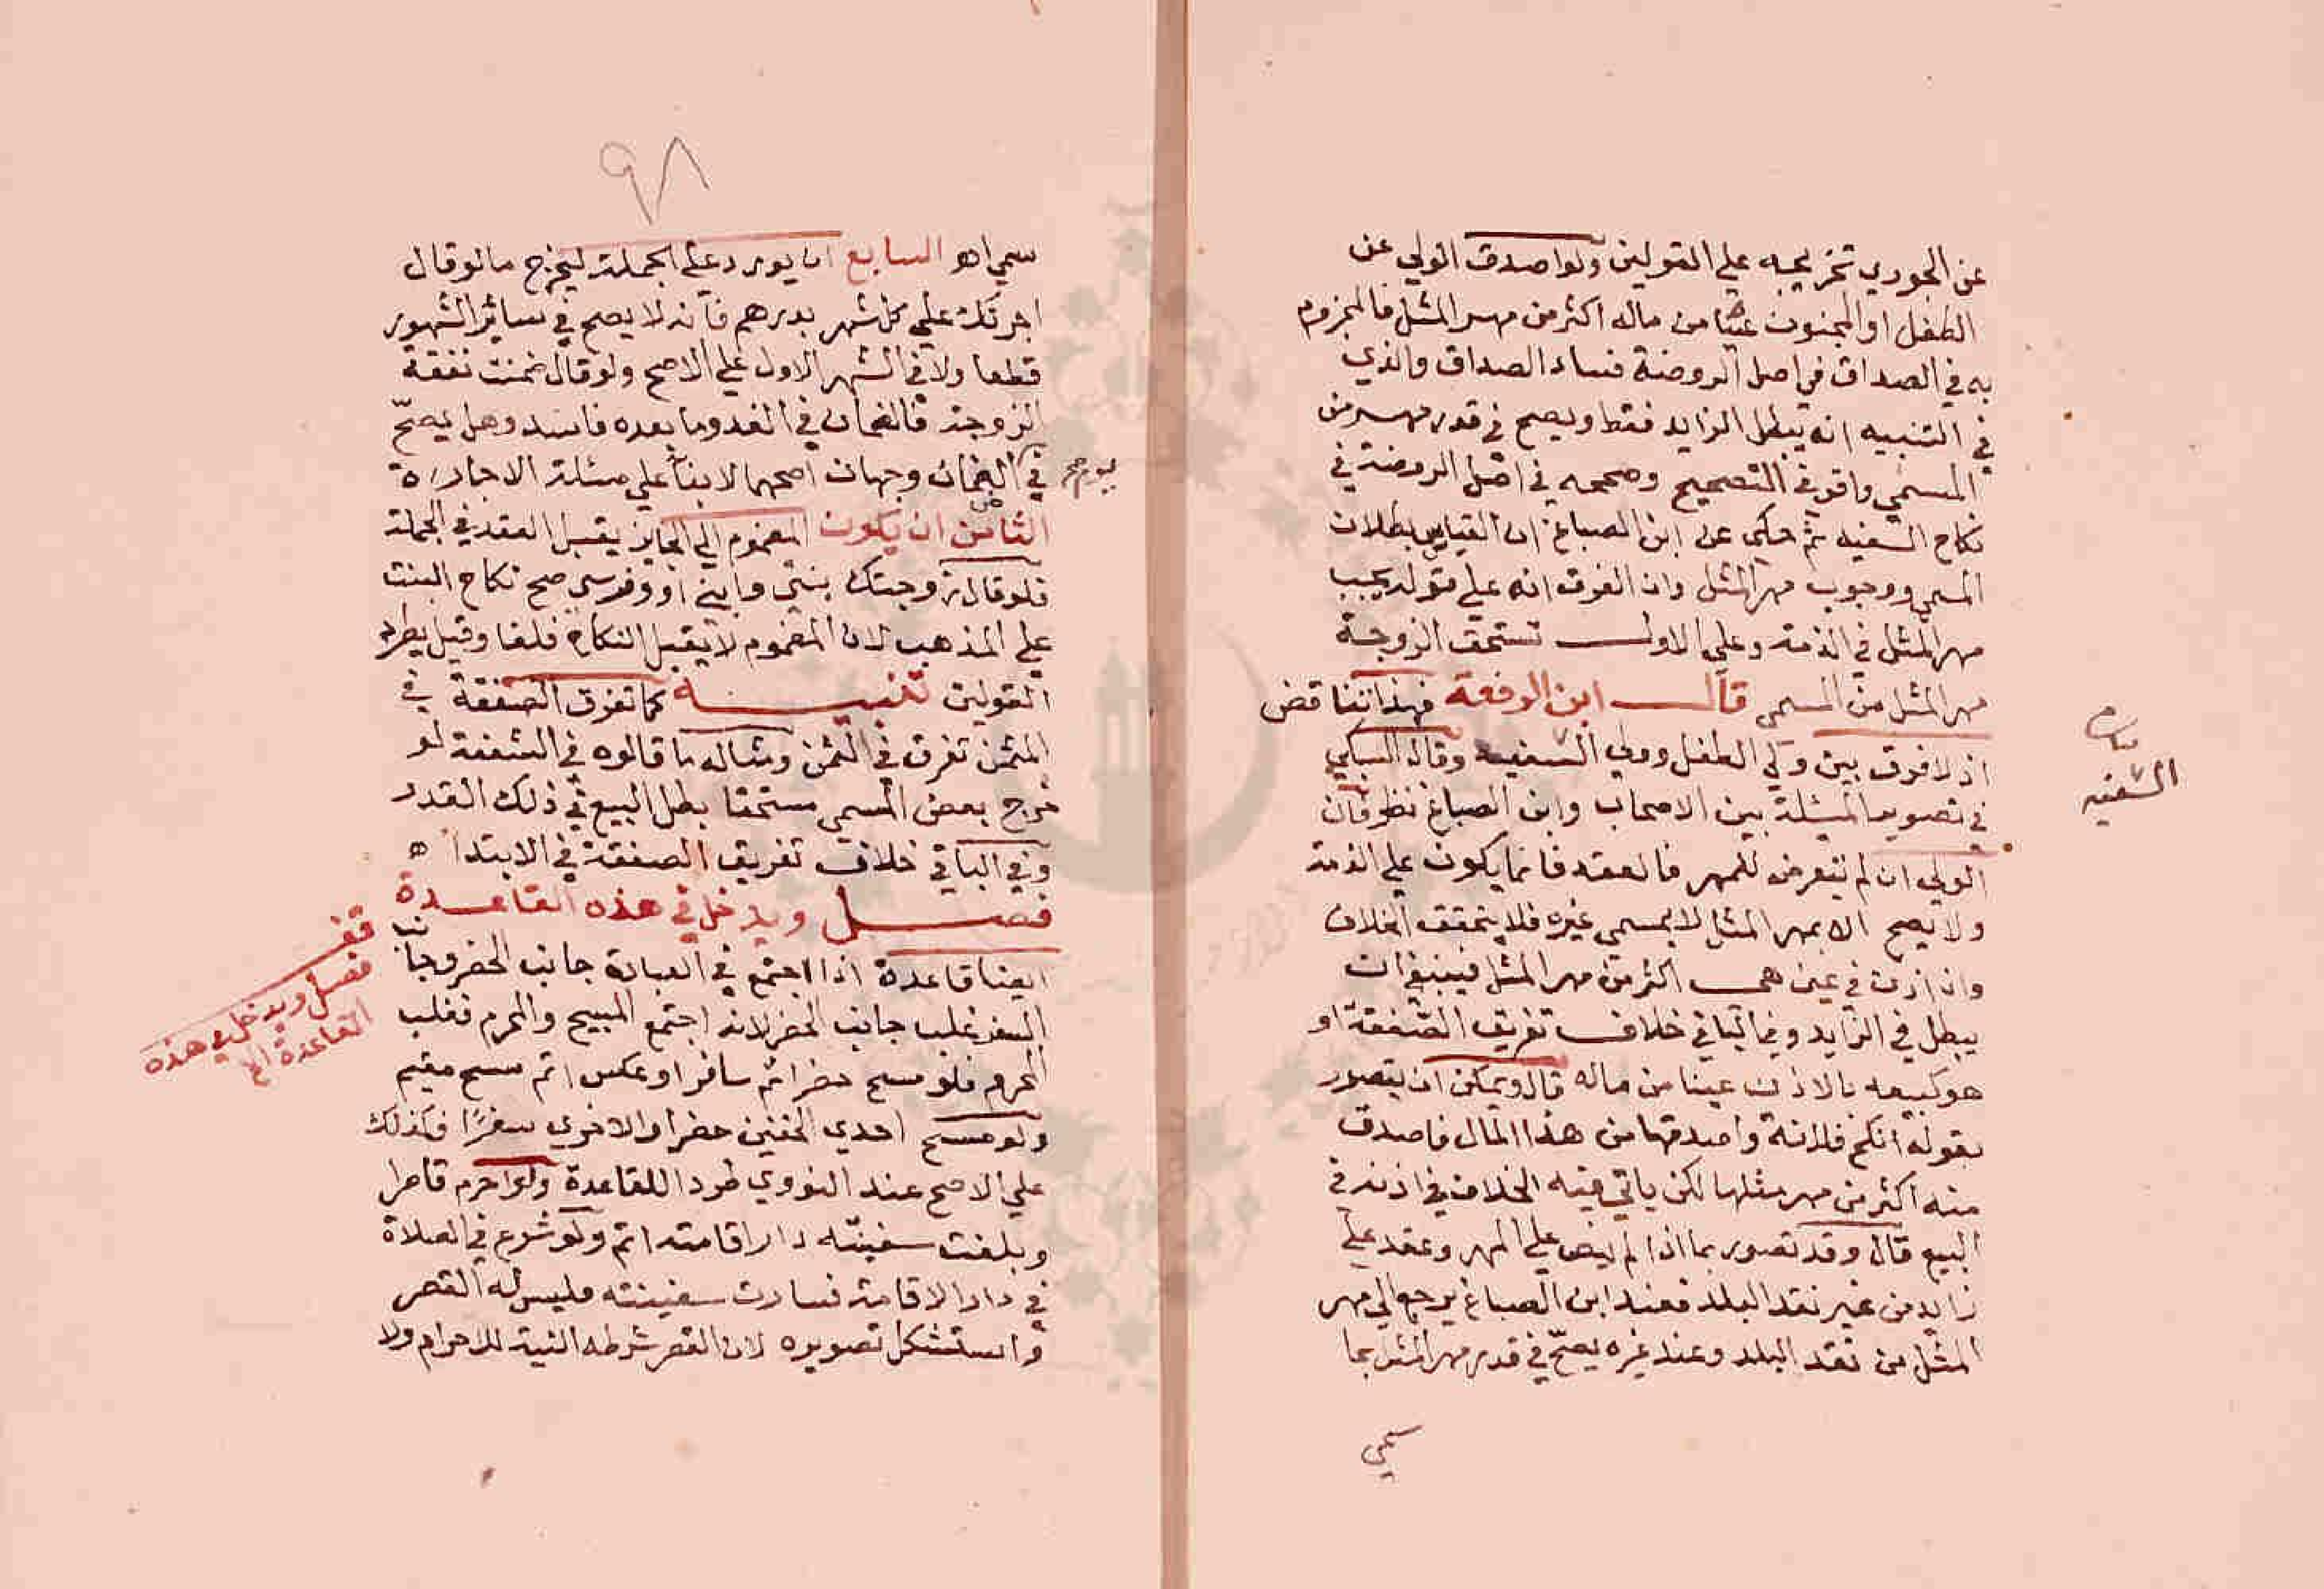 عن الجوري تخريجه على القولين ولو اصدق الولي عن
الطفل او المجنون عينا من ماله اكثر من مهر المثل فالمجزوم
به في الصداق في اصل الروضة فساد الصداق والذي
في التنبيه انه يبطل الزايد فقط ويصح في قدر مهر من
المسمي واقره في التصحيح وصححه في اصل الروضة في
نكاح السفيه ثم حكى عن ابن الصباغ ان القياس بطلان
المسمي ووجوب مهر المثل وان الفرق انه على قوله يجب
مهر المثل في الذمة وعلى الاول تستحق الزوجة
مهر المثل من المسمى قال ابن الرفعة فهذا تناقض
اذ لا فرق بين ولي الطفل وولي السفيه وقال السبكي
السفيه
في تصوير المسئلة بين الاصحاب وابن الصباغ نظر فان
الولي ان لم يتعرض للمهر فالعقد فانما يكون على الذمة
ولا يصح الا بمهر المثل لا بمسمى غيره فلا يتحقق الخلاف
وان اذن في عين هي اكثر من مهر المثل فينبغي ان
يبطل في الزايد وفي الباقي خلاف تفريق الصفقة او
هو كبيعه بالاذن عينا من ماله قال ويمكن ان يتصور
بقوله انكح فلانة واصدقها من هذا المال فاصدق
منه اكثر من مهر مثلها لكن ياتي فيه الخلاف في اذنه في
البيع قال وقد تصور بما اذا لم ينص على المهر وعقد على
زايد من غير نقد البلد فعند ابن الصباغ يرجع الي مهر
المثل من نقد البلد وعند غيره يصح في قدر مهر المثل مما
سمي
٩٨
سمي اه السابع ان يورد على الجملة ليخرج ما لو قال
اجرتك كل شهر بدرهم فانه لا يصح في سائر الشهور
قطعا ولا في الشهر الاول على الاصح ولو قال ضمنت نفقة
الزوجة فالضمان في الغد وما بعده فاسد وهل يصح
في الضمان وجهان اصحهما لا بناء على مسئلة الاجارة
الثامن ان يكون المضموم الى الجايز يقبل العقد في الجملة
فلو قال زوجتك بنتي وابني او وفرسي صح نكاح البنت
على المذهب لان المضموم لا يقبل النكاح فلغا وقيل يطرد
القولين تنبيه كما تفرق الصفقة في
المثمن تفرق في الثمن ومثاله ما قالوه في الشفعة لو
خرج بعض المسمى مستحقا بطل البيع في ذلك القدر
وفي الباقي خلاف تفريق الصفقة في الابتدا ه
فصل ويدخل في هذه القاعدة
ايضا قاعدة اذا اجتمع في العبادة جانب الحضر وجانب
السفر غلب جانب الحضر لانه اجتمع المبيح والمحرم فغلب
المحرم فلو مسح حضرا ثم سافر او عكس اتم مسح مقيم
ولو مسح احدى الخفين حضرا والاخرى سفرا فكذلك
على الاصح عند النووي طردا للقاعدة ولو احرم قاصرا
وبلغت سفينته دار اقامته اتم ولو شرع في الصلاة
في دار الاقامة فسارت سفينته فليس له القصر
واستشكل تصويره لان القصر شرطه النية للاحرام ولا
قف
فصل ويدخل في هذه
القاعدة الخ